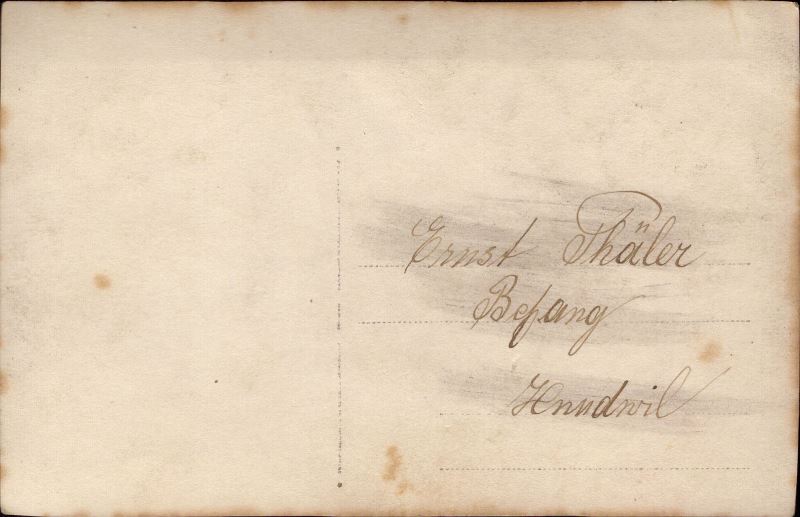 Ernst Thäler
Befang
Knudwil